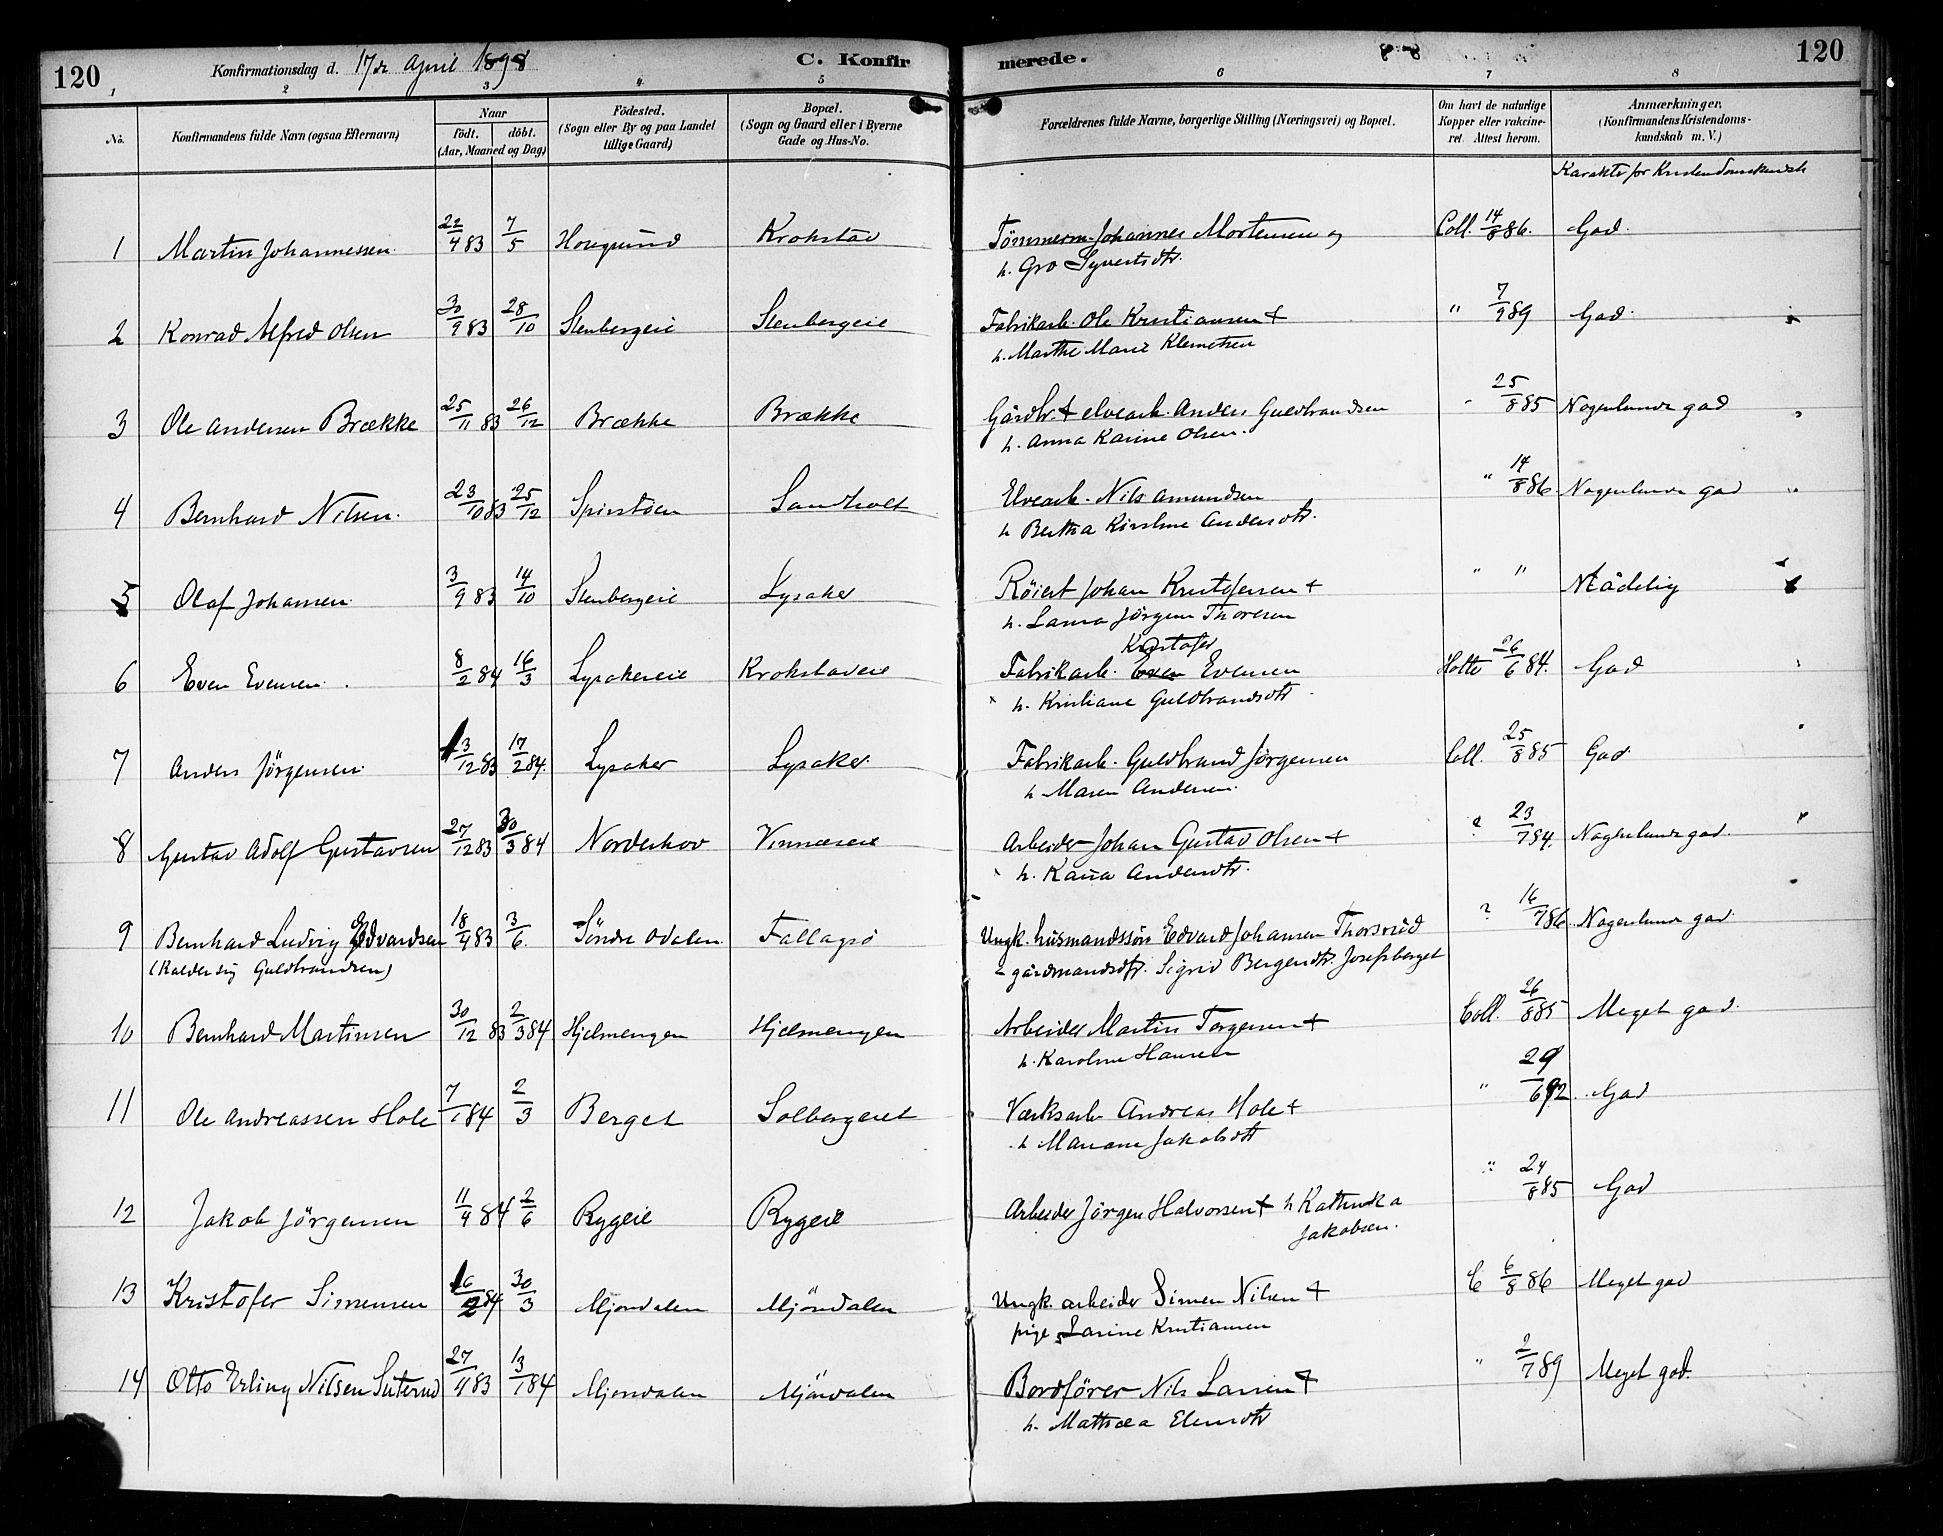 120
Konfirmationsdag d. 17de April 1898
C. Konfirmerede.
120
1 2 3 4 5 6 7 8
No. Konfirmandens fulde Navn (ogsaa Efternavn) Naar født. døbt. (Aar, Maaned og Dag) Födested. (Sogn eller By og paa Landet tillige Gaard) Bopæl. (Sogn og Gaard eller i Byerne Gade og Hus-No. Forældrenes fulde Navne, borgerlige Stilling (Næringsvei) og Bopæl. Om havt de naturlige Kopper eller vakcineret. Attest herom. Anmærkninger. (Konfirmandens Kristendomskundskab m. V.)
Karakter for Kristendomskundsk
1 Martin Johannessen 22/4 83 7/5 Hougsund Krokstad Tömmerm. Johannes Mortensen og Coll. 14/8 86. God.
h. Gro Syvertsdtr.
2 Konrad Alfred Olsen 30/9 83 28/10 Stenbergeie Stenbergeie Fabrikarb. Ole Kristiansen + " 7/9 89 God.
h. Marthe Marie Klemetsen
3 Ole Andersen Brække 25/11 83 26/12 Brække Brække Gårdbr. + elvearb. Anders Guldbrandsen 25/8 85 Nogenlunde god
h. Anna Karine Olsen.
4 Bernhard Nilsen. 23/10 83 25/12 Sandholt Elvearb. Nils Amundsen " 14/8 86 Nogenlunde god
h Bertha Kirstine Andersdtr.
5 Olaf Johansen 3/9 83 14/10 Stenbergeie Lysaker Røiert Johan Kristofersen + " " Mådelig
h. Laura Jörgine Thoresen
Kristofer
6 Even Evensen. 8/2 84 16/3 Lysakereie Krokstadeie Fabrikarb. Even Evensen Holte 26/6 84. God
h. Kristiane Guldbrandsdtr
7 Anders Jörgensen 13/12 83 17/2 84. Lysaker Lysaker Fabrikarb. Guldbrand Jörgensen Coll. 25/8 85 God
h Maren Andersen.
8 Gustav Adolf Gustavsen 27/12 83 30/3 84 Norderhov Vinnæseie Arbeider Johan Gustav Olsen + ? 23/7 84. Nogenlunde god.
h. Kaisa Andersdtr.
9 Bernhard Ludvig Edvardsen 18/4 83 3/6. Söndre Odalen Fallagsö Ungk. husmandssön Edvard Johansen Thorsrud ? 16/7 86. Nogenlunde god
(kalder sig Guldbrandsen) gårdmandsdtr. Sigrid Bergendtr. Josefsberget
10 Bernhard Martinsen 30/12 83 2/3 84 Hjelmengen Hjelmengen Arbeider Martin Torgersen + Coll. 26/8 85 Meget god.
h. Karoline Hansen
11 Ole Andreassen Hole 7/1 84 2/3 Berget Solberg Værksarb Andreas Hole + " 29/6 92. God
h Mariane Jakobsdtr
12 Jakob Jörgensen 11/4 84 2/6 Rygeie Rygeie Arbeider Jörgen Halvorsen + h Kathinka " 24/8 85 God
Jakobsen.
13 Kristofer Simensen 16/2 84 30/3 Mjöndalen Mjöndalen Ungk. arbeider Simen Nilsen + C 6/8 86 Meget god
pige Larine Kristiansen
14 Otto Erling Nilsen Suterud 27/11 83 13/1 84 Mjöndalen Mjöndalen Bordfører Nils Larsen + " 2/7 89 Meget god.
h. Mathea Elensdtr